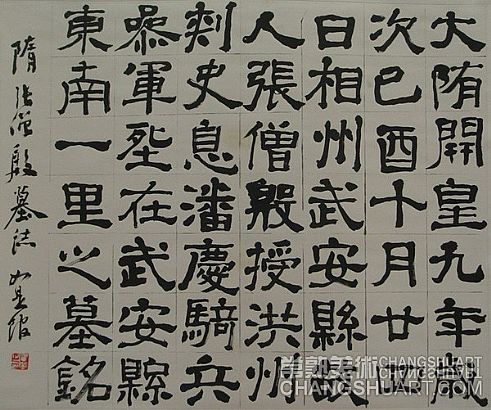 大陏開皇九年歲
次己酉十月廿四
日相州武安縣
人張僧殷授洪州
刺史息潘慶騎兵
參軍在武安縣
東南一里之墓銘
隋張僧殷墓誌
常熟美術 CHANGSHUART
CHANGSHUART.COM